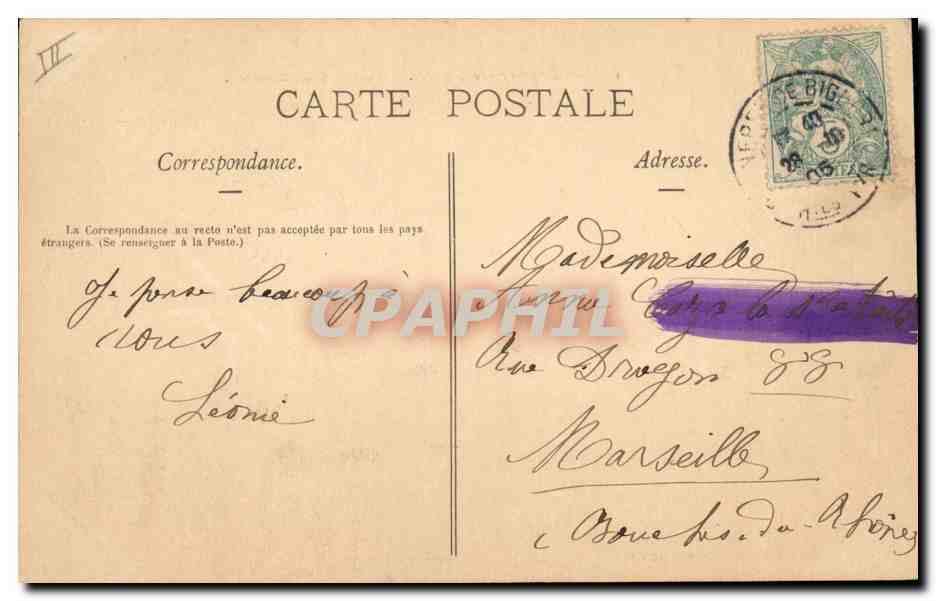 III
CARTE POSTALE
Correspondance.
La Correspondance au recto n'est pas acceptée par tous les pays
étrangers. (Se renseigner à la Poste.)
Je pense beaucoup à
vous
Léonie
Adresse.
DE BIG
28
05
Mademoiselle
chez la
Rue Dragon 88
Marseille
Bouches-du-Rhône
CPAPHIL